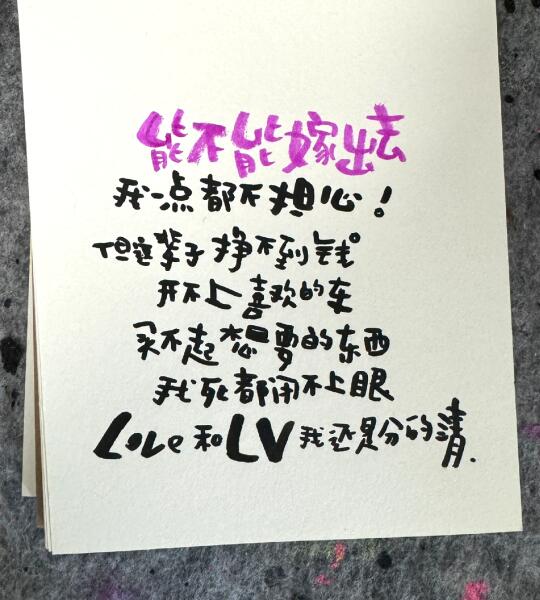 能不能嫁出去
我一点都不担心！
但这辈子挣不到钱
开不上喜欢的车
买不起想要的东西
我死都闭不上眼
Love和LV我还是分的清.